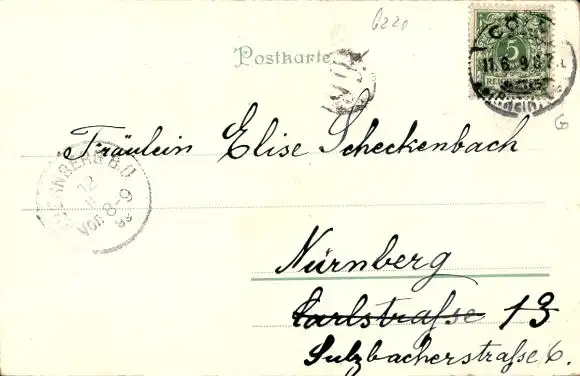 6220
Postkarte.
CÖLN
5
11.6.98 7
Fräulein Elise Scheckenbach
NÜRNBERG B.O.
12
Vor. 8-9
98
Nürnberg
Carlstraße 13
Sulzbacherstraße 6.